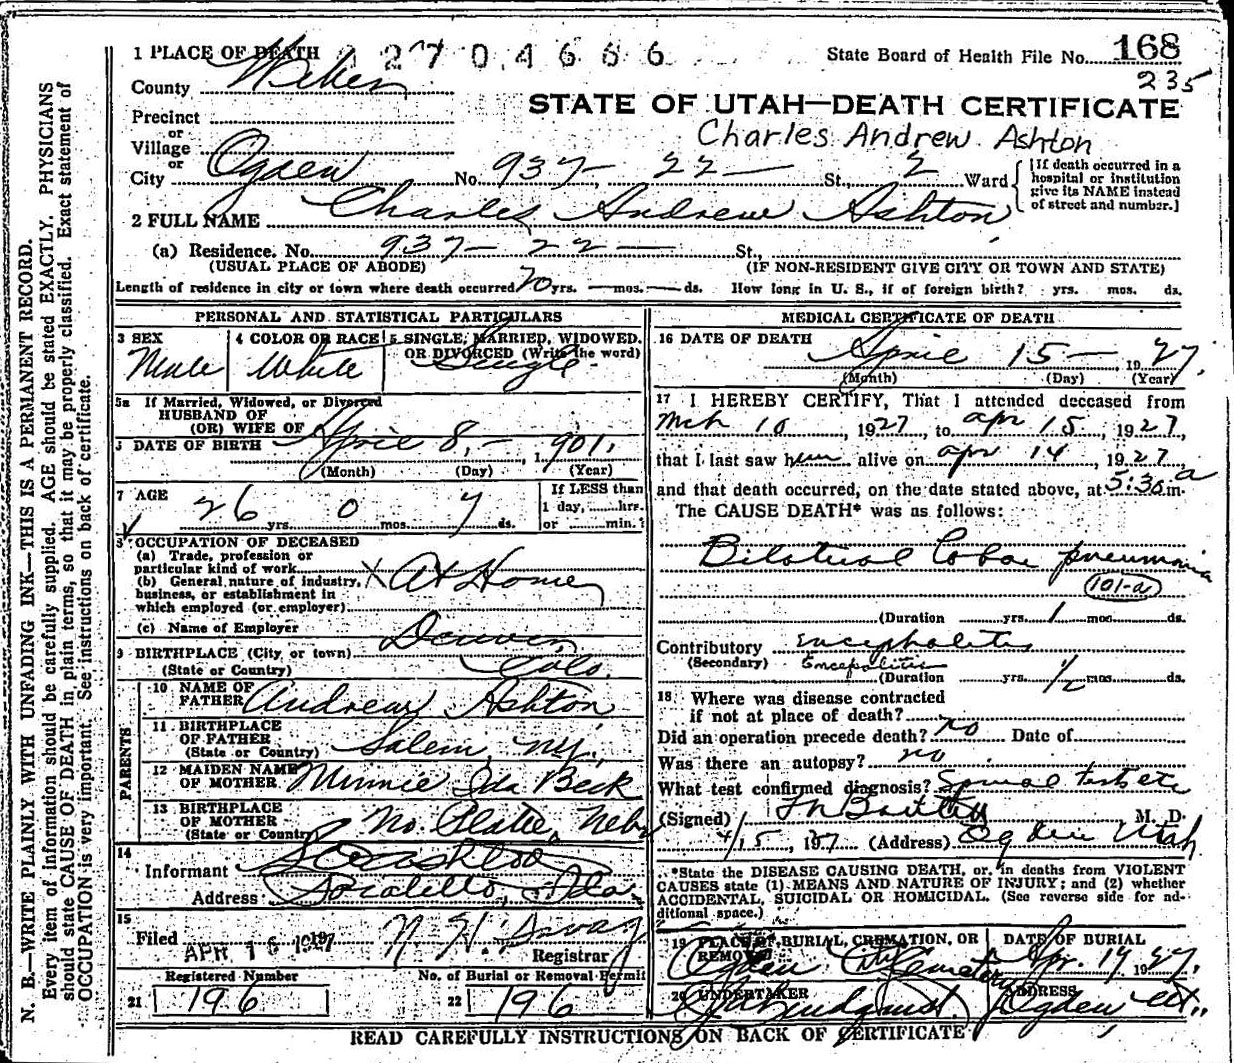 1 PLACE OF DEATH 2704666 State Board of Health File No. 168
County Weber 235
STATE OF UTAH—DEATH CERTIFICATE
Precinct
or Charles Andrew Ashton
Village
or
City Ogden No. 937- 22- St., 2 Ward
[If death occurred in a
hospital or institution
give its NAME instead
of street and number.]
2 FULL NAME Charles Andrew Ashton
(a) Residence. No. 937- 22- St.,
(USUAL PLACE OF ABODE) (IF NON-RESIDENT GIVE CITY OR TOWN AND STATE)
Length of residence in city or town where death occurred 20 yrs. — mos. — ds. How long in U. S., if of foreign birth? yrs. mos. ds.
PERSONAL AND STATISTICAL PARTICULARS
3 SEX Male
4 COLOR OR RACE White
5 SINGLE, MARRIED, WIDOWED,
OR DIVORCED (Write the word)
Single
5a If Married, Widowed, or Divorced
HUSBAND OF
(OR) WIFE OF
DATE OF BIRTH April 8, - 1901.
(Month) (Day) (Year)
7 AGE 26 yrs. 0 mos. 7 ds.
If LESS than
1 day, hrs.
or min.?
8 OCCUPATION OF DECEASED
(a) Trade, profession or
particular kind of work X At Home
(b) General nature of industry,
business, or establishment in
which employed (or employer)
(c) Name of Employer
9 BIRTHPLACE (City, or town) Denver,
(State or Country) Colo.
PARENTS
10 NAME OF
FATHER Andrew Ashton
11 BIRTHPLACE
OF FATHER
(State or Country) Salem, N.J.,
12 MAIDEN NAME
OF MOTHER Minnie Ida Beck
13 BIRTHPLACE
OF MOTHER
(State or Country) No. Platte, Nebr
14
Informant
Address Pocatello, Ida.
15
Filed APR 16 1927
Registrar
Registered Number No. of Burial or Removal Permit
21 196 22 196
MEDICAL CERTIFICATE OF DEATH
16 DATE OF DEATH April 15- 1927.
(Month) (Day) (Year)
17 I HEREBY CERTIFY, That I attended deceased from
Mch 10, 1927, to Apr 15, 1927,
that I last saw him alive on Apr 14 1927
and that death occurred, on the date stated above, at 5:30 a m.
The CAUSE DEATH* was as follows:
Bilateral Lobar pneumonia
101-a
(Duration yrs. 1 mos. ds.
Contributory Encephalitis
(Secondary) Encepalitis
(Duration yrs. 1/2 mos. ds.
18 Where was disease contracted
if not at place of death?
Did an operation precede death? no Date of
Was there an autopsy? no
What test confirmed diagnosis? Spinal test etc
(Signed) M. D.
4/15, 1927 (Address) Ogden Utah
*State the DISEASE CAUSING DEATH, or, in deaths from VIOLENT
CAUSES state (1) MEANS AND NATURE OF INJURY; and (2) whether
ACCIDENTAL, SUICIDAL OR HOMICIDAL. (See reverse side for ad-
ditional space.)
19 PLACE OF BURIAL, CREMATION, OR
REMOVAL
Ogden City Cemetery
DATE OF BURIAL
Apr. 19 1927.
20 UNDERTAKER
Lindquist.
ADDRESS
Ogden Ut.,
READ CAREFULLY INSTRUCTIONS ON BACK OF CERTIFICATE
N. B.—WRITE PLAINLY WITH UNFADING INK—THIS IS A PERMANENT RECORD.
Every item of information should be carefully supplied. AGE should be stated EXACTLY. PHYSICIANS
should state CAUSE OF DEATH in plain terms, so that it may be properly classified. Exact statement of
OCCUPATION is very important. See instructions on back of certificate.